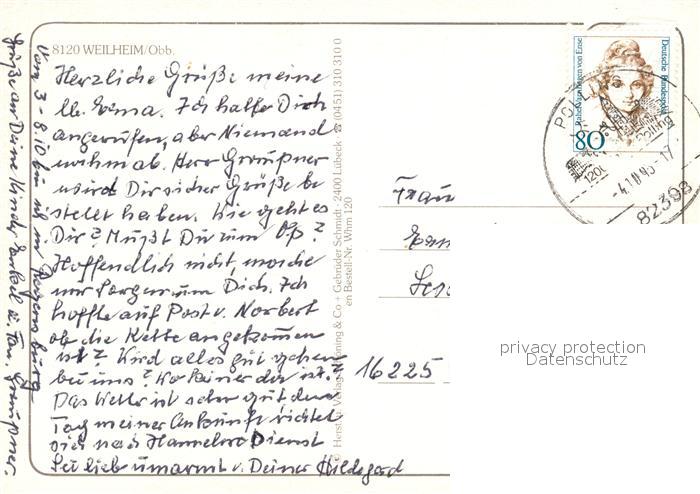 8120 WEILHEIM/Obb.
Herzliche Grüße meine
lb. Erna. Ich hatte Dich
angerufen, aber Niemand
nahm ab. Herr Graupner
wird Dir sicher Grüße be
stellt haben. Wie geht es
Dir? Mußt Du zum Op?
Hoffendlich nicht, mache
mir Sorgen um Dich. Ich
hoffte auf Post v. Norbert
ob die Kette angekommen
ist? Wird alles gut gehen
bei uns? Wo Rainer da ist?
Das Wetter ist sehr gut der
Tag meiner Ankunft richtet
sich nach Hannelore Dienst
Sei lieb umarmt v. Deiner Hildegard
Vom 3 - 8.10 bin ich in Regensburg
Grüße an Deine Kinder Enkel u. Fam. Graupner.
2400 Lübeck ☎ (0451) 310 310 0
© Herst. u. Verlag Schöning & Co + Gebrüder Schmidt
en Bestell-Nr. Whm 120
Deutsche Bundespost
Rahel Varnhagen von Ense
80
POLLING
Polling
-4.10.95-17
82398
Frau
16225
privacy protection
Datenschutz